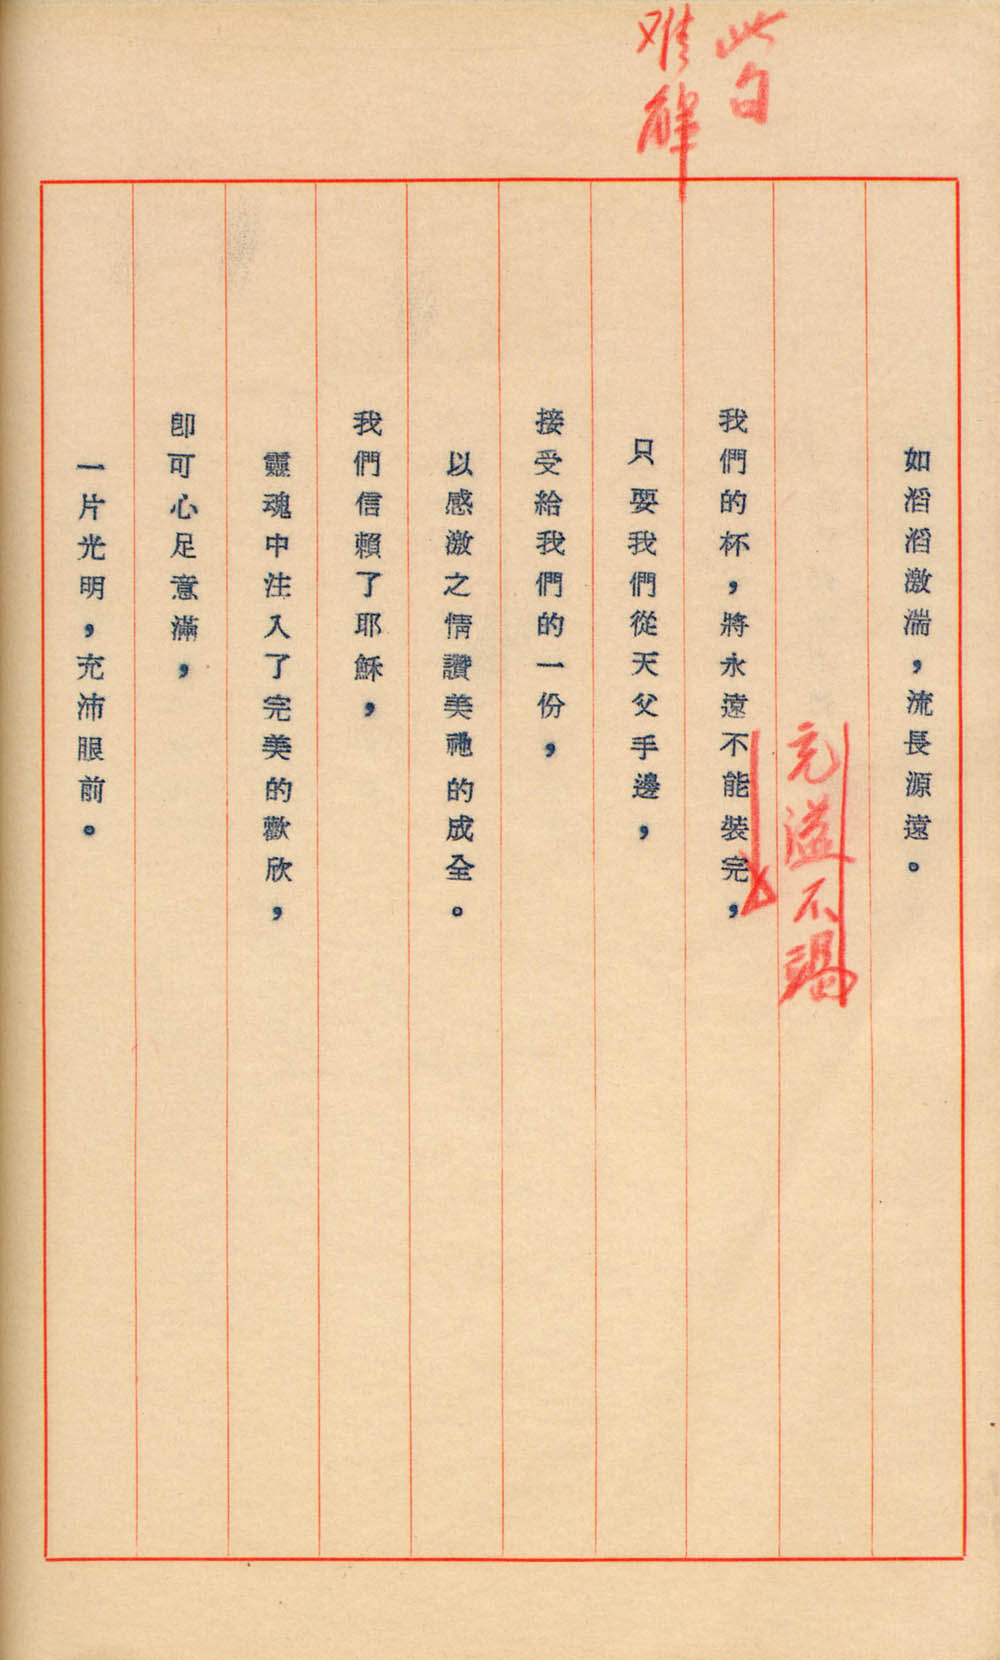 此句
难解
如滔滔激湍，流長源遠。
充溢不竭
我們的杯，將永遠不能裝完，
只要我們從天父手邊，
接受給我們的一份，
以感激之情讚美祂的成全。
我們信賴了耶穌，
靈魂中注入了完美的歡欣，
卽可心足意滿，
一片光明，充沛眼前。